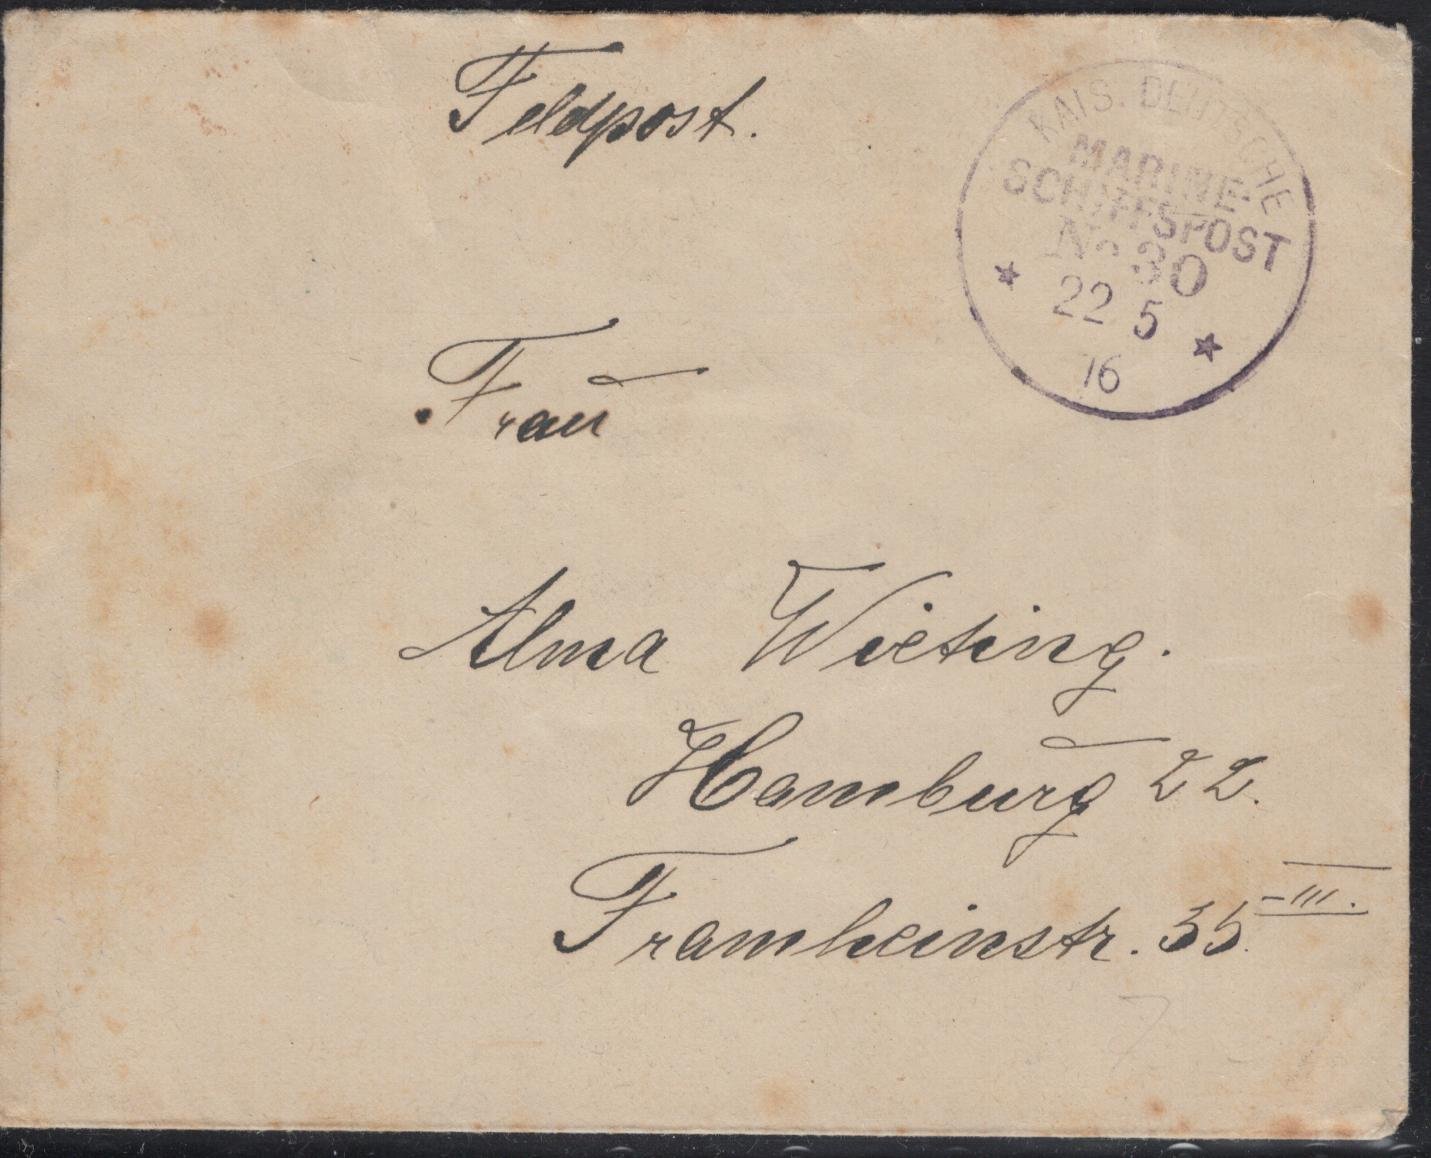 Feldpost.
KAIS. DEUTSCHE
MARINE-
SCHIFFSPOST
No 30
22 5
16
Frau
Alma Wieting.
Hamburg 22.
Framheinstr. 35 - III.